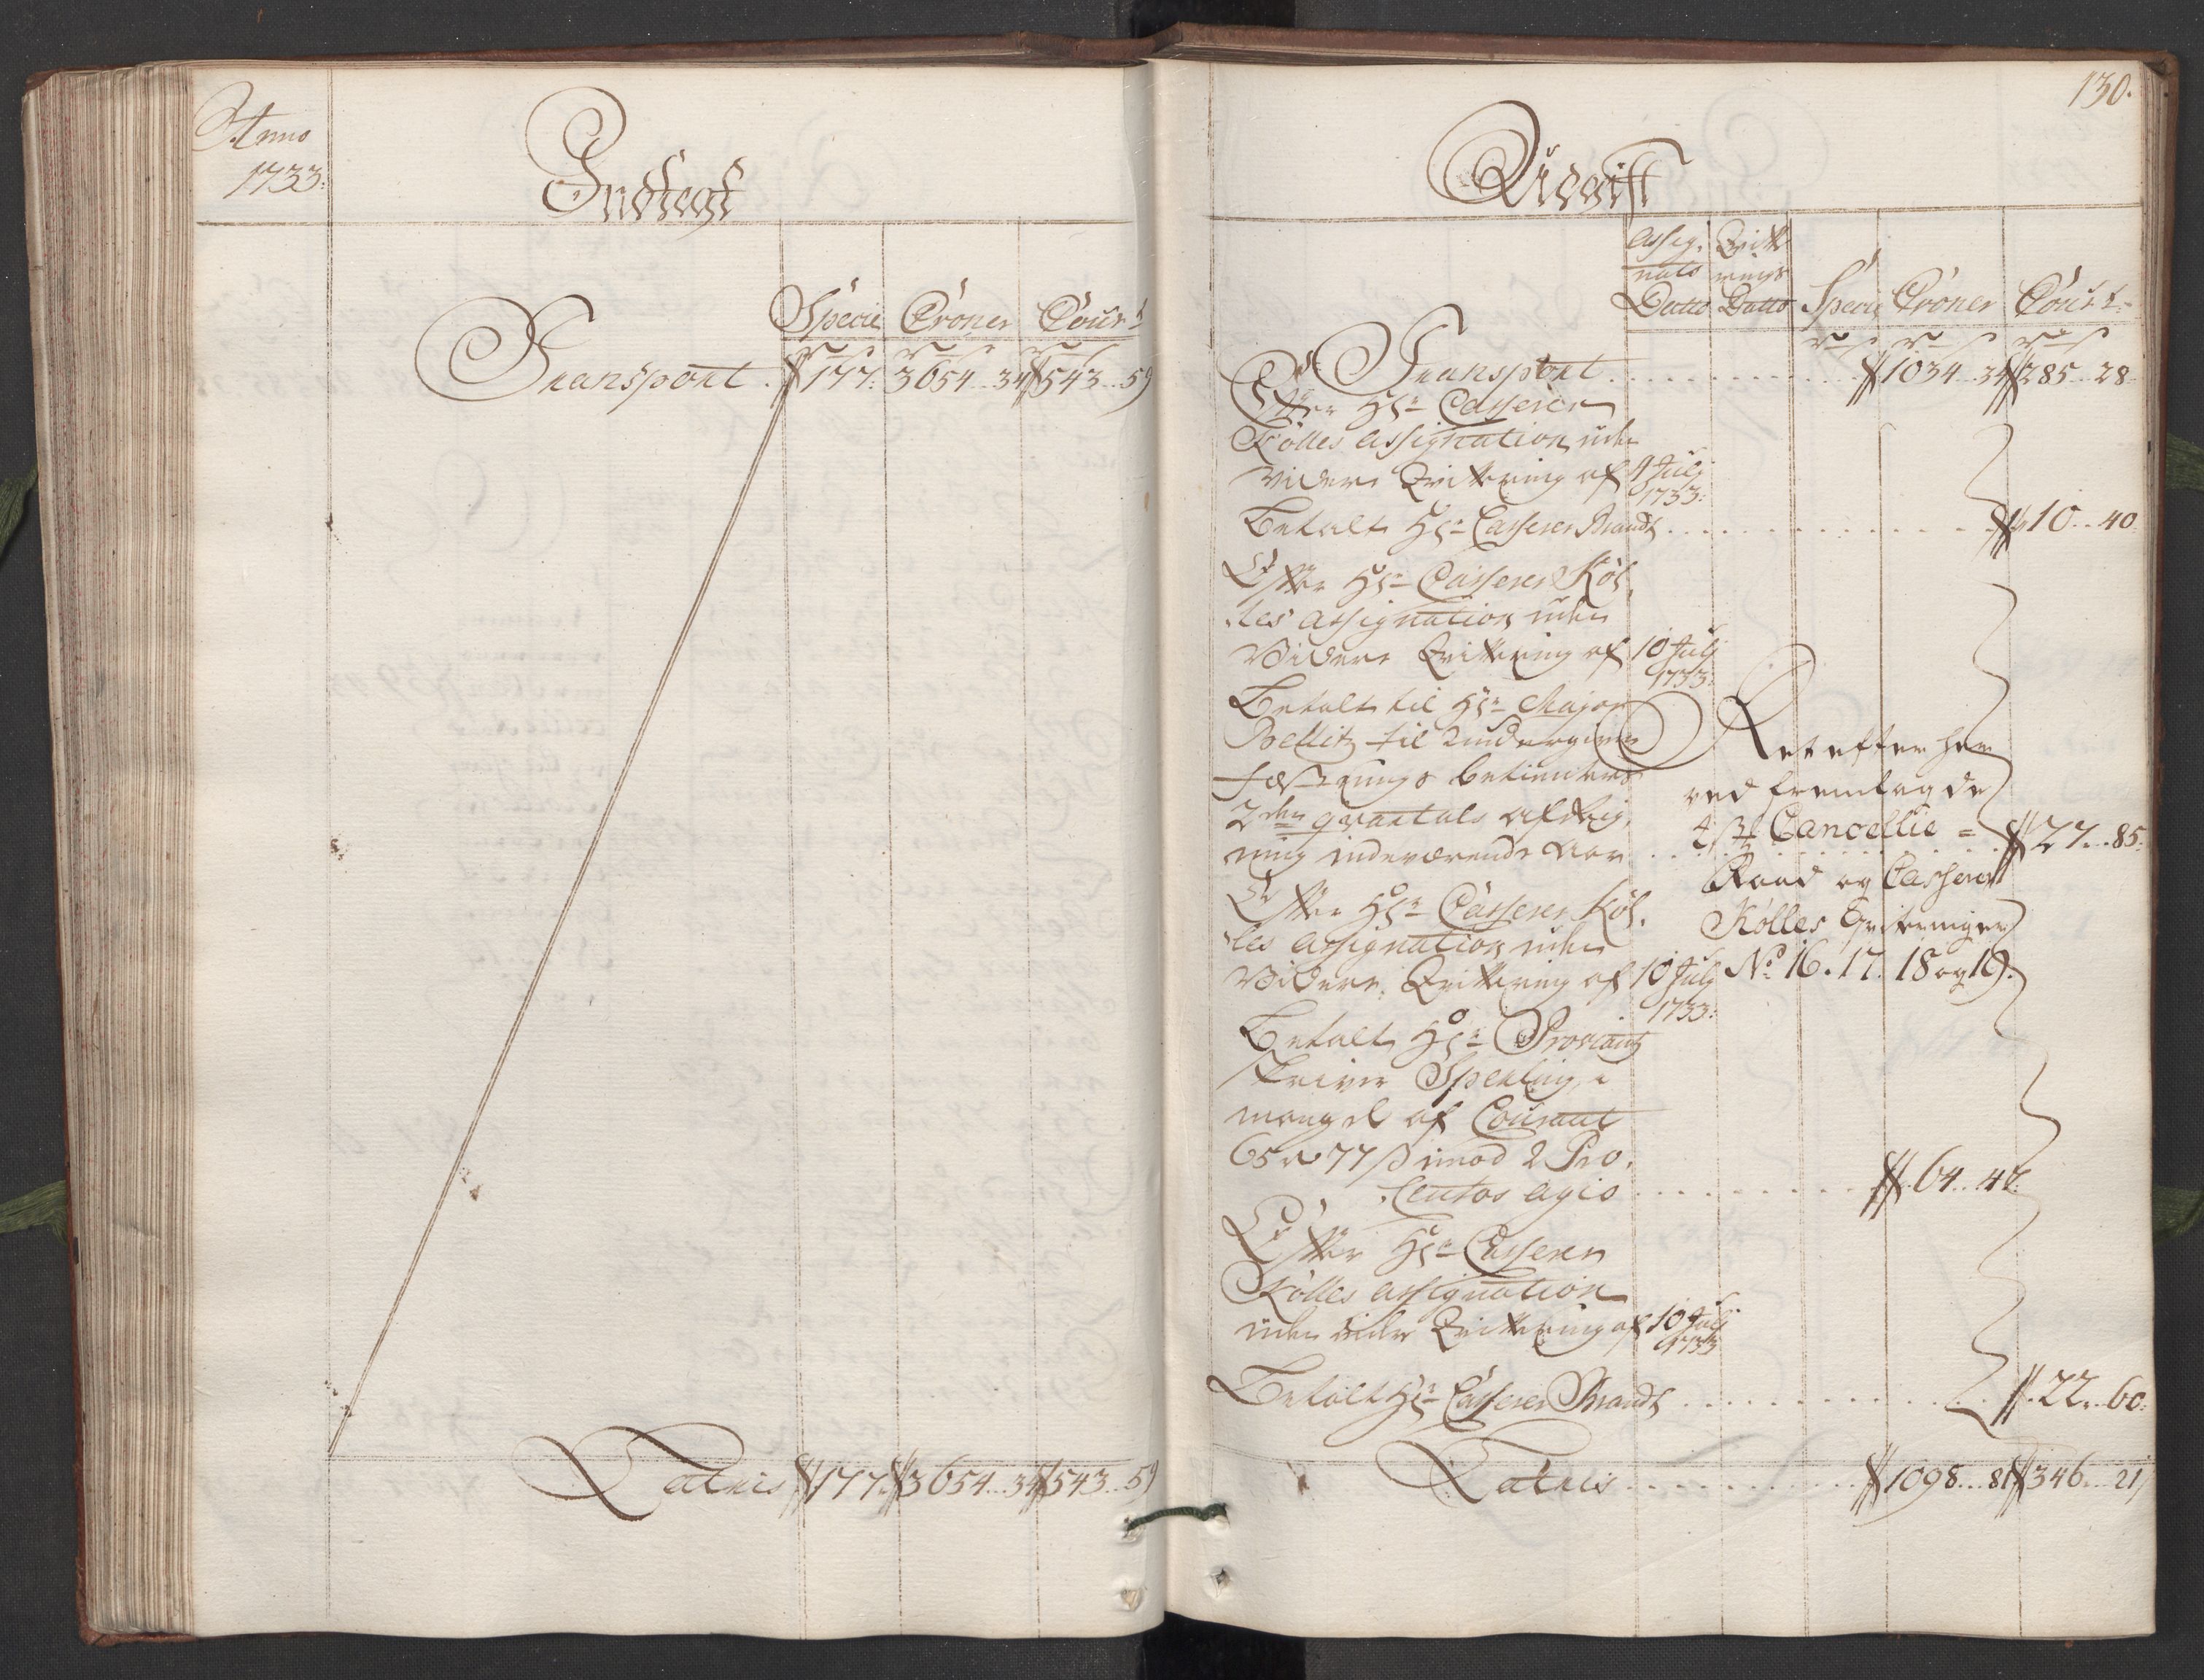 Anno
1733.
Indtegt
Specie Croner Cour t
Transport . 177. 3654..34 543..59
Lateris 177. 3654..34 543..59
130.
Udgift
Assig. Qvitte
nats rings
Datto Datto Specie Croner Cour t.
Transport 1034..34 285..28
Efter Hr. Casserer
Kølles assignation uden
videre Qvittering af 9 Julj
1733.
Betalt Hr. Casserer Brandt 10..40
Efter Hr. Casserer Køl,
les assignation uden
Videre Qvittering af 10 Julj
1733.
Betalt til Hr. Major
til underгivne
fæstnings betienters
2den qvartals aftegning
ning indeværende Aar 27..85.
Efter Hr. Casserer Køl,
les assignation uden
Videre Qvittering af 10 Julj
1733.
Betalt Hr. Proviant
skriver Sperling, i
mangel af Courant
65 77 ß imod 2 Pro,
Centos agio 64..47.
Efter Hr. Casserer
Kølles assignation
uden videre Qvittering af 10 Julj
1733
Betalt Hr. Casserer Brandt 22..60.
Lateris 1098..81 346..21
Ret efter her
ved fremlagde
4 st. Cancellie =
Raad og Casserer
Kølles Qvitteringer
No. 16. 17. 18 og 19.